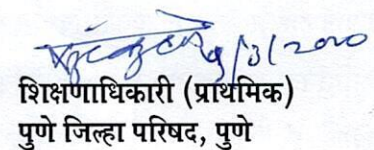 9/3/2020
शिक्षणाधिकारी (प्राथमिक)
पुणे जिल्हा परिषद, पुणे